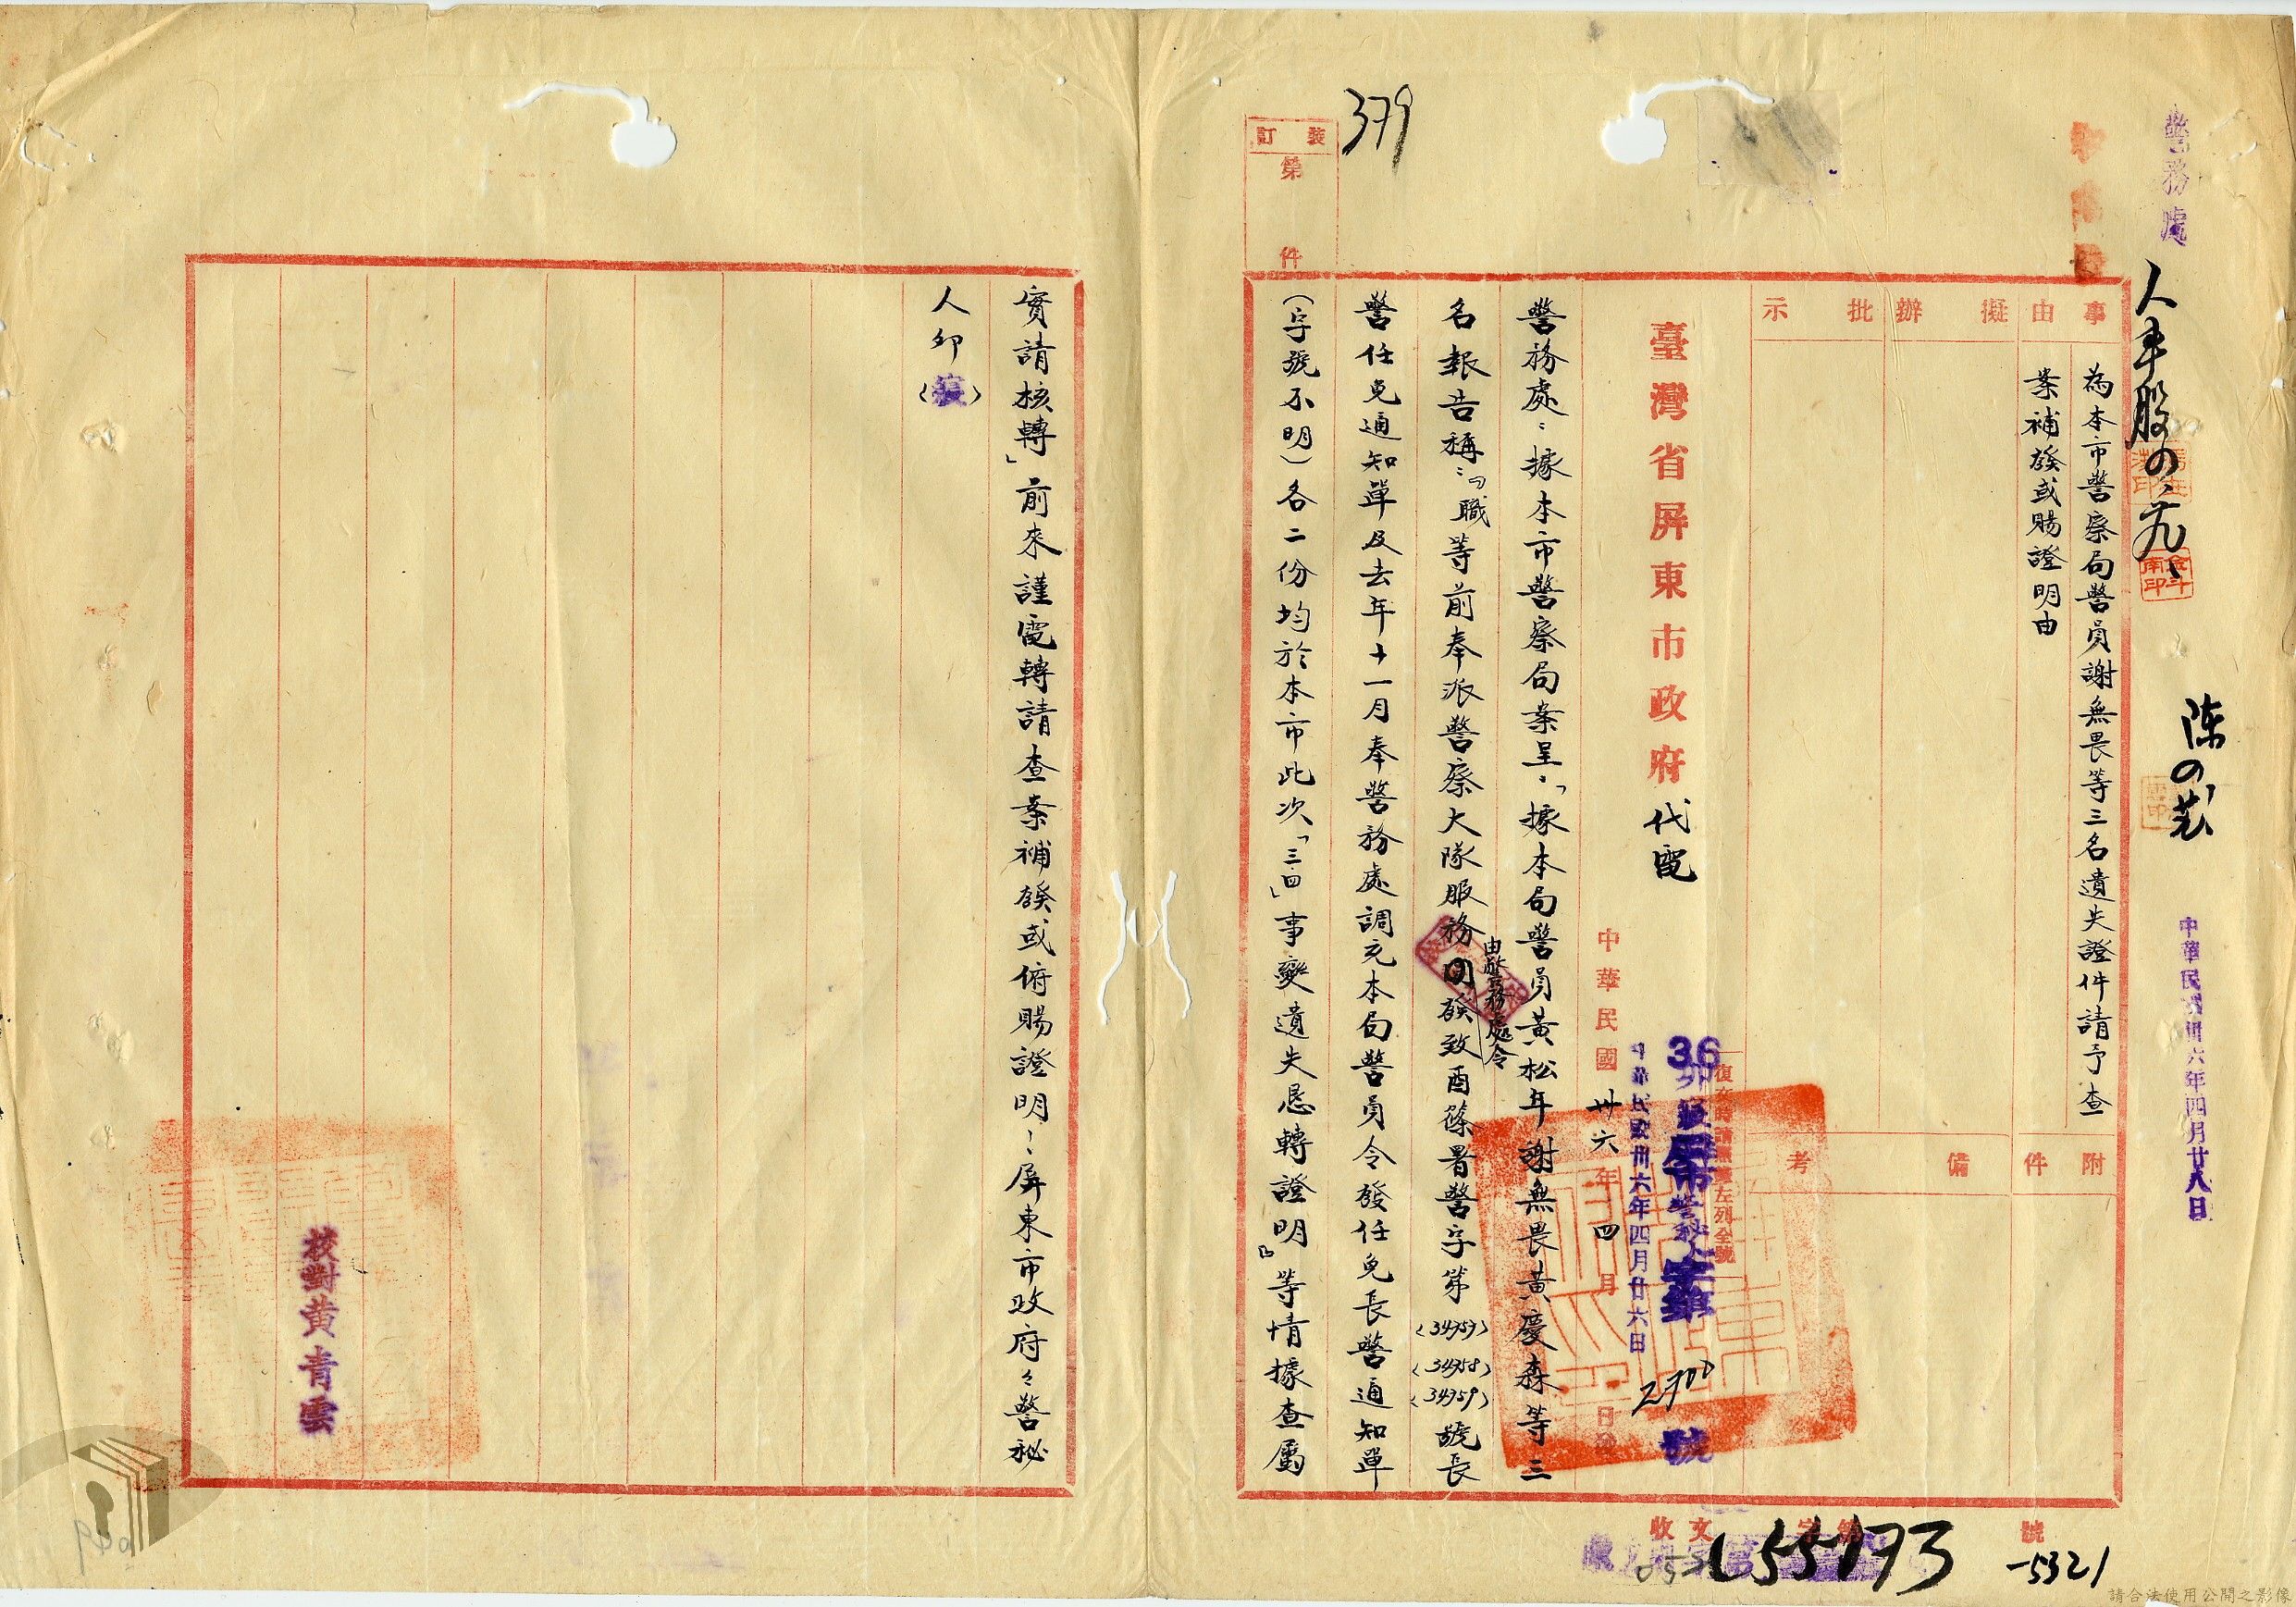 警務處
人事股
陳
中華民國卅六年四月廿八日
事由
為本市警察局警員謝無畏等三名遺失證件請予查
案補發或賜證明由
擬辦
批示
附件
備考
復文時請無遺左列全號
36
屏市警秘人字第
2700
號
臺灣省屏東市政府代電
中華民國卅六年四月廿六日
中華民國卅六年四月 日發
警務處：據本市警察局案呈：「據本局警員黃松年謝無畏黃慶森等三
名報告稱：『職等前奉派警察大隊服務
由警務處令
發致酉篠署警字第
(34757)
(34758)
(34759)
號長
警任免通知單及去年十一月奉警務處調充本局警員令發任免長警通知單
(字號不明)各二份均於本市此次「三．四」事變遺失懇轉證明』等情據查屬
裝訂
第
件
379
收文 字第 號
55173
5321
實請核轉」前來謹電轉請查案補發或俯賜證明：屏東市政府々警秘
人卯
校對黃青雲
請合法使用公開之影像